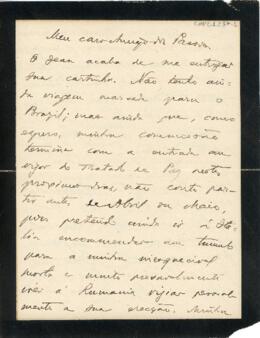 Meu caro Amigo Dr. Pessôa.
O Jean acaba de me entregar
sua cartinha. Não tenho ain-
da viagem marcada para o
Brazil; mas ainda que, como
espero, minha commissão
termine com a entrada em
vigor do Tratado de Paz nestes
proximos dias, não conto par-
tir antes de Abril ou Maio,
pois pretendo ainda ir á Ita-
lia encommendar um tumulo
para a minha
morta e muito provavelmente
irei á Rumania vigiar pessoal-
mente a sua erecção. Minha